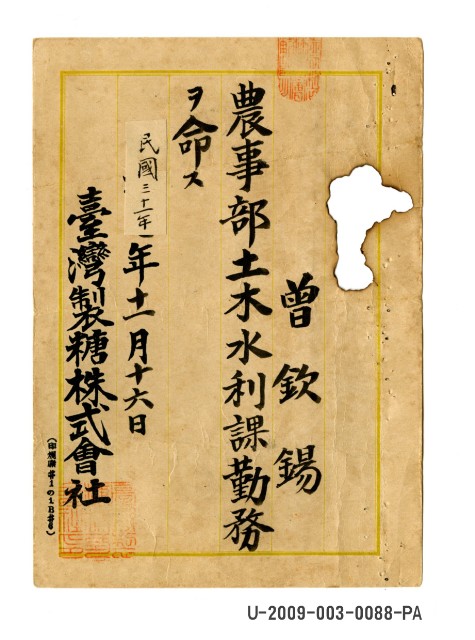 曾欽錫
農事部土木水利課勤務
ヲ命ス
民國三十一年
年十一月十六日
臺灣製糖株式會社
U-2009-003-0088-PA